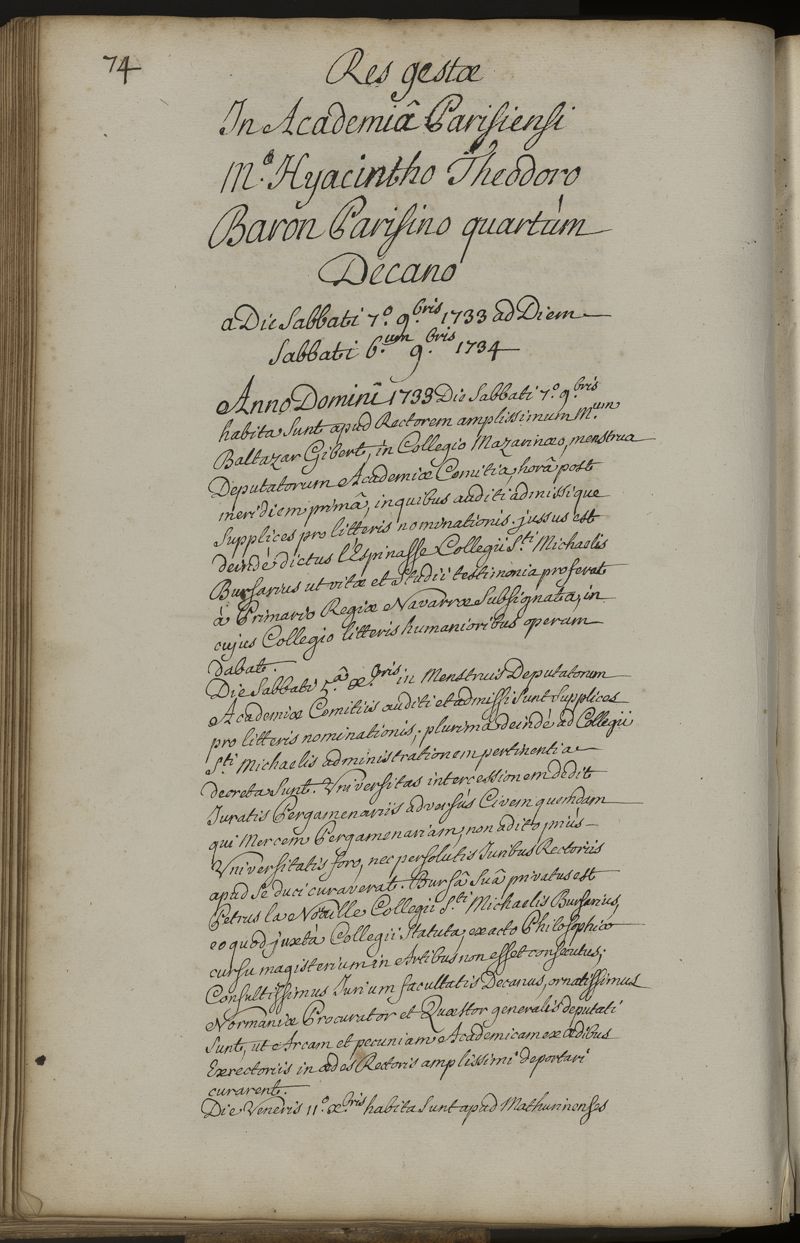 74
Res gestæ
In Academiâ Parisiensi
M.º Hyacintho Theodoro
Baron Parisino quartùm
Decano
a Die Sabbati 7.º 9.bris 1733 ad Diem
Sabbati 6.um 9.bris 1734
Anno Domini 1733 Die Sabbati 7.º 9.bris
habita Sunt apud Rectorem amplissimum M.um
Baltazar Gibert, in Collegio Mazarinæo, menstrua
Deputatorum Academiæ Comitia, horâ post
meridiem primâ, in quibus auditi admissique
Supplices pro litteris nominationis. jussus est
deindè dictus l'Espinasse Collegii S.ti Michaelis
Bursarius ut vitæ et Studii testimonia proferat
à Primario Regiæ Navarræ Subsignata, in
cujus Collegio litteris humanioribus operam
dabat.
Die Sabbati 5.â x.bris in Menstruis Deputatorum
Academiæ Comitiis auditi et admissi Sunt Supplices
pro litteris nominationis; plurima deindè ad Collegii
S.ti Michaelis administrationem pertinentia
decreta Sunt. Universitas intercessionem dedit
Juratis Pergamenariis adversùs Civem quemdam
qui Mercem Pergamenariam, non adito, prius
Universitatis foro, nec persolutis Juribus Rectoriis
apud Se duci curaverat. Bursâ Suâ privatus est
Petrus la Noüille Collegii S.ti Michaelis Bursarius,
eo quod juxtà Collegii Statuta, exacto Philosophico
cursu magisterium in Artibus non esset consecutus;
Consultissimus Jurium facultatis Decanus, ornatissimus
Normaniæ Procurator et Quæstor generalis deputati
Sunt, ut Arcam et pecuniam Academicam ex ædibus
Exrectoriis in ædes Rectoris amplissimi deportari
curarent.
Die Veneris 11.º x.bris habita Sunt apud Mathurinenses